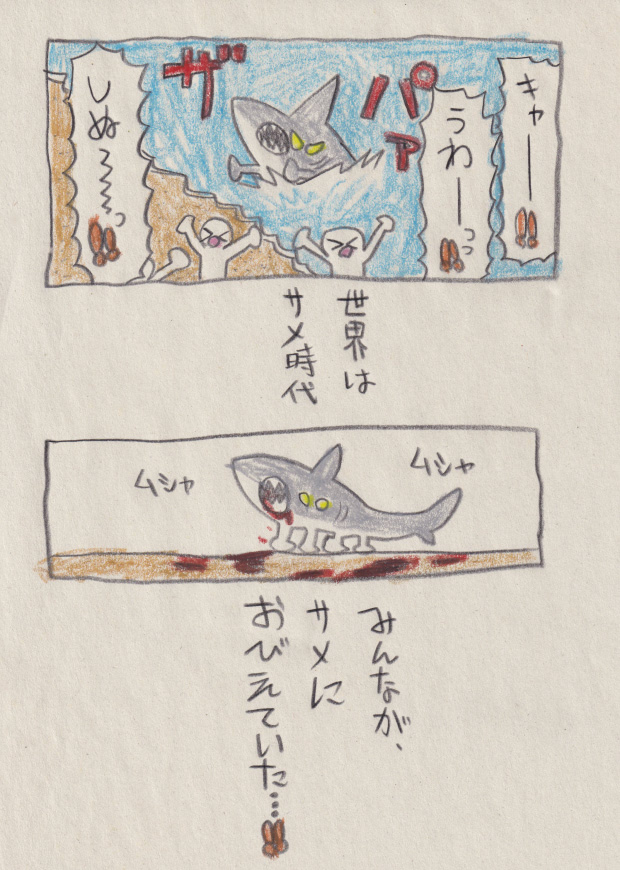 キャーーー!!
うわーーっっ!!
ザパァ
しぬぅ〜〜〜っ!!
世界は
サメ時代
ムシャ
ムシャ
みんなが、
サメに
おびえていた…!!